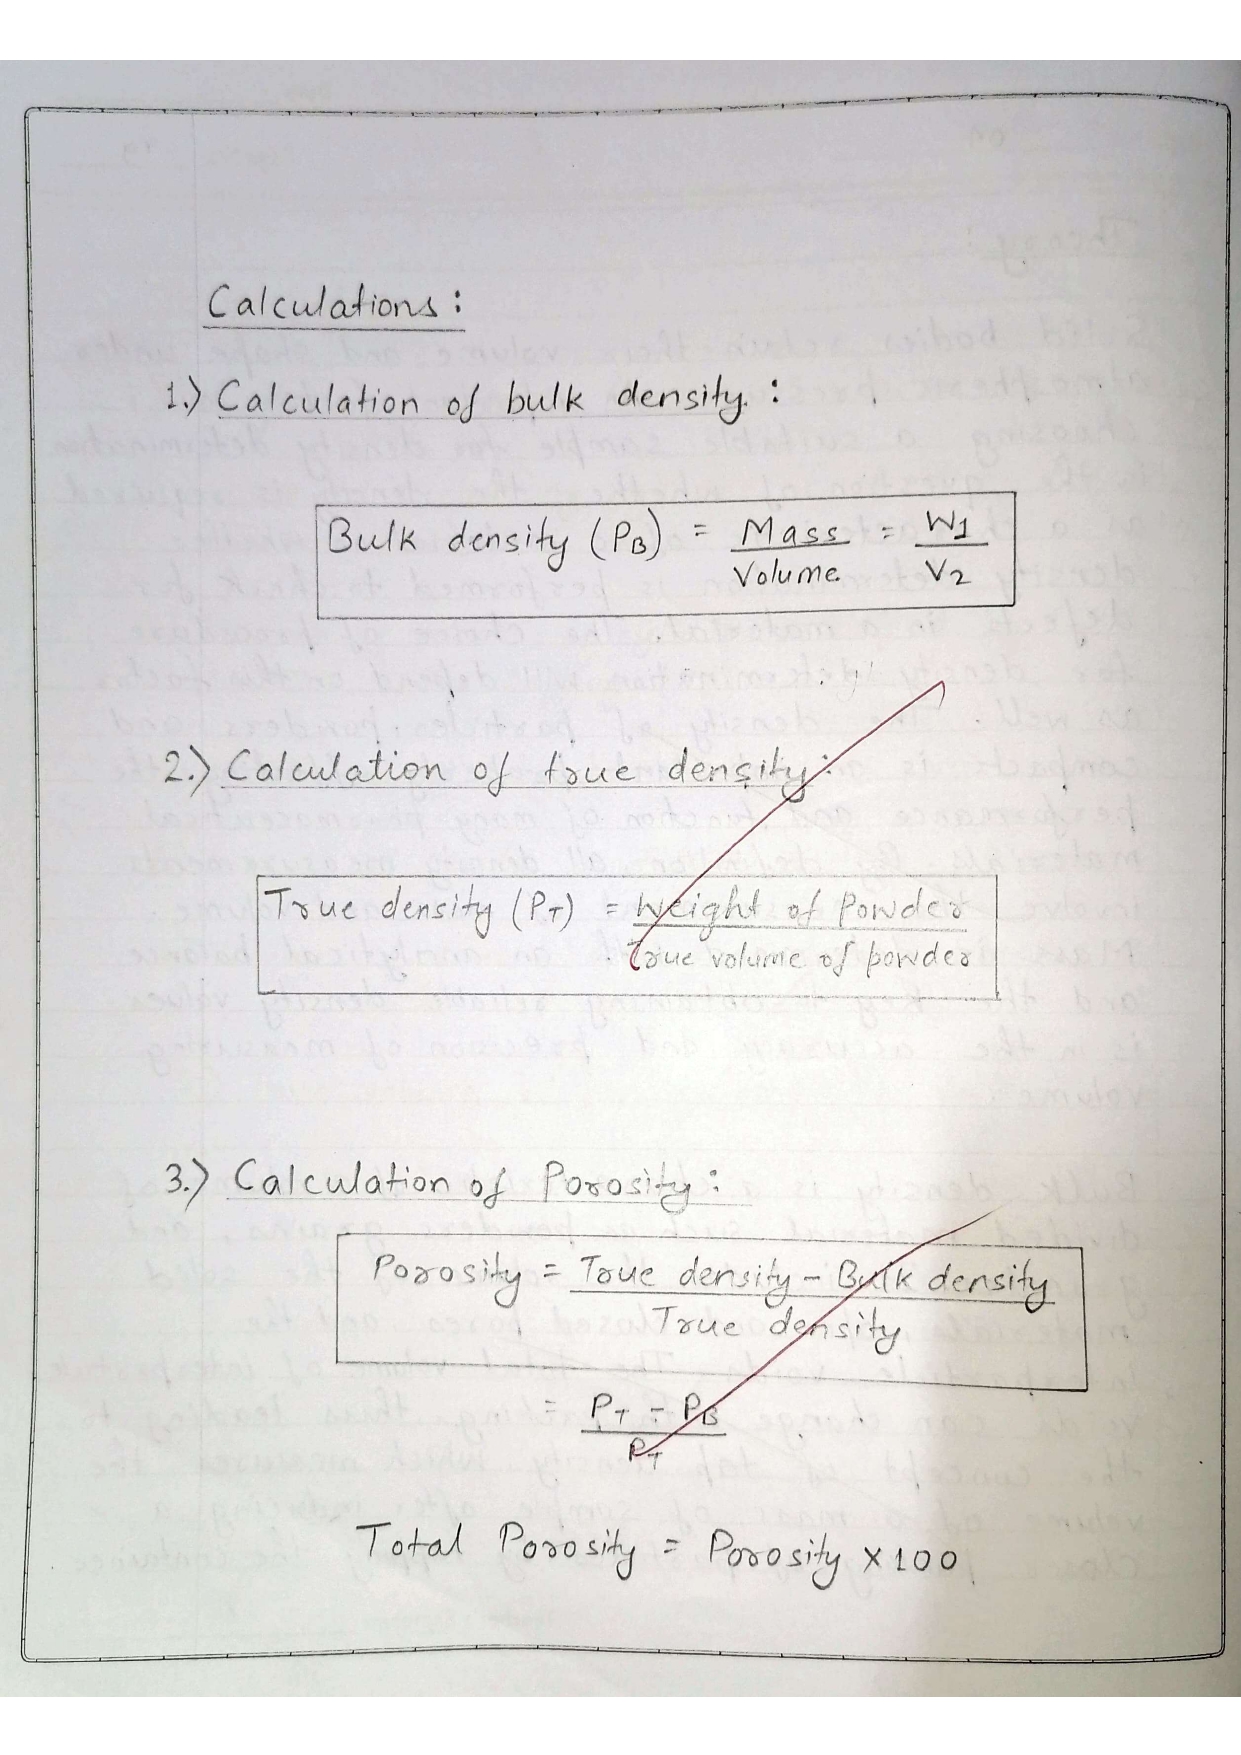 Calculations:
1.) Calculation of bulk density:
Bulk density (PB) = Mass / Volume = W1 / V2
2.) Calculation of true density:
True density (PT) = Weight of Powder / True volume of powder
3.) Calculation of Porosity:
Porosity = True density - Bulk density / True density
= PT - PB / PT
Total Porosity = Porosity x 100